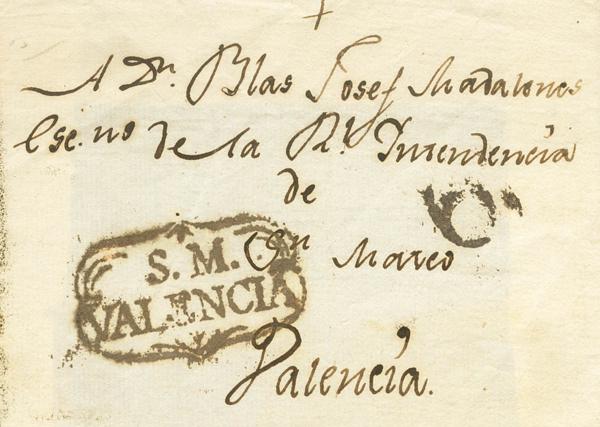 A Dn. Blas Josef Madalones
Esc.no de la Rl. Intendencia
de
Sn Marco
S. M.
VALENCIA
6.
Valencia.